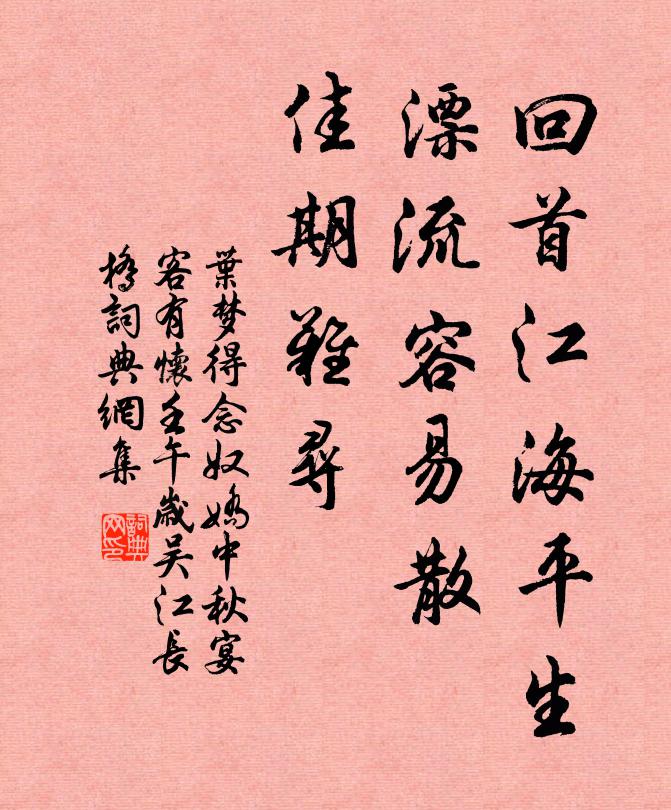 回首江海平生
漂流容易散
佳期難尋
葉梦得念奴嬌中秋宴
客有懷壬午歲吴江長
橋詞典網集
詞典网印